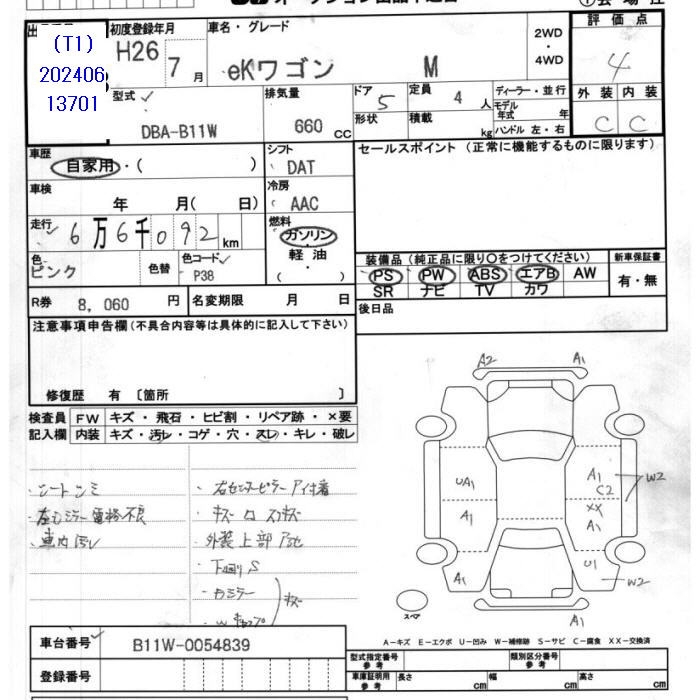 (T1)
202406
13701
初度登録年月
H26 7 月
車名・グレード
eKワゴン M
2WD
・
4WD
評価点
4
外装 内装
C C
型式
DBA-B11W
排気量
660 cc
ドア
5
形状
定員
4 人
積載
kg
ディーラー・並行
モデル
年式 年
ハンドル 左・右
車歴
自家用・( )
シフト
DAT
セールスポイント (正常に機能するものに限ります)
車検
年 月( 日)
冷房
AAC
走行
6万6千092 km
燃料
ガソリン
軽油
( ・ )
色
ピンク
色替
色コード
P38
装備品(純正品に限り○をつけてください)
PS PW ABS エアB AW
SR ナビ TV カワ
新車保証書
有・無
R券
8,060 円
名変期限 月 日
後日品
注意事項申告欄(不具合内容等は具体的に記入して下さい)
修復歴 有 〔箇所 〕
検査員 FW キズ・飛石・ヒビ割・リペア跡・×要
記入欄 内装 キズ・汚レ・コゲ・穴・スレ・キレ・破レ
シートシミ
左ドアミラー電格不良
車内汚レ
下回りS
A2 A1
UA1
A1
A1
A1
C2
XX
A1
W2
U1
W2
A1
A1
スペア
A-キズ E-エクボ U-凹み W-補修跡 S-サビ C-腐食 XX-交換済
車台番号 B11W-0054839
登録番号
型式指定番号
参考
類別区分番号
参考
車庫証明用
参考
長さ cm
幅 cm
高さ cm